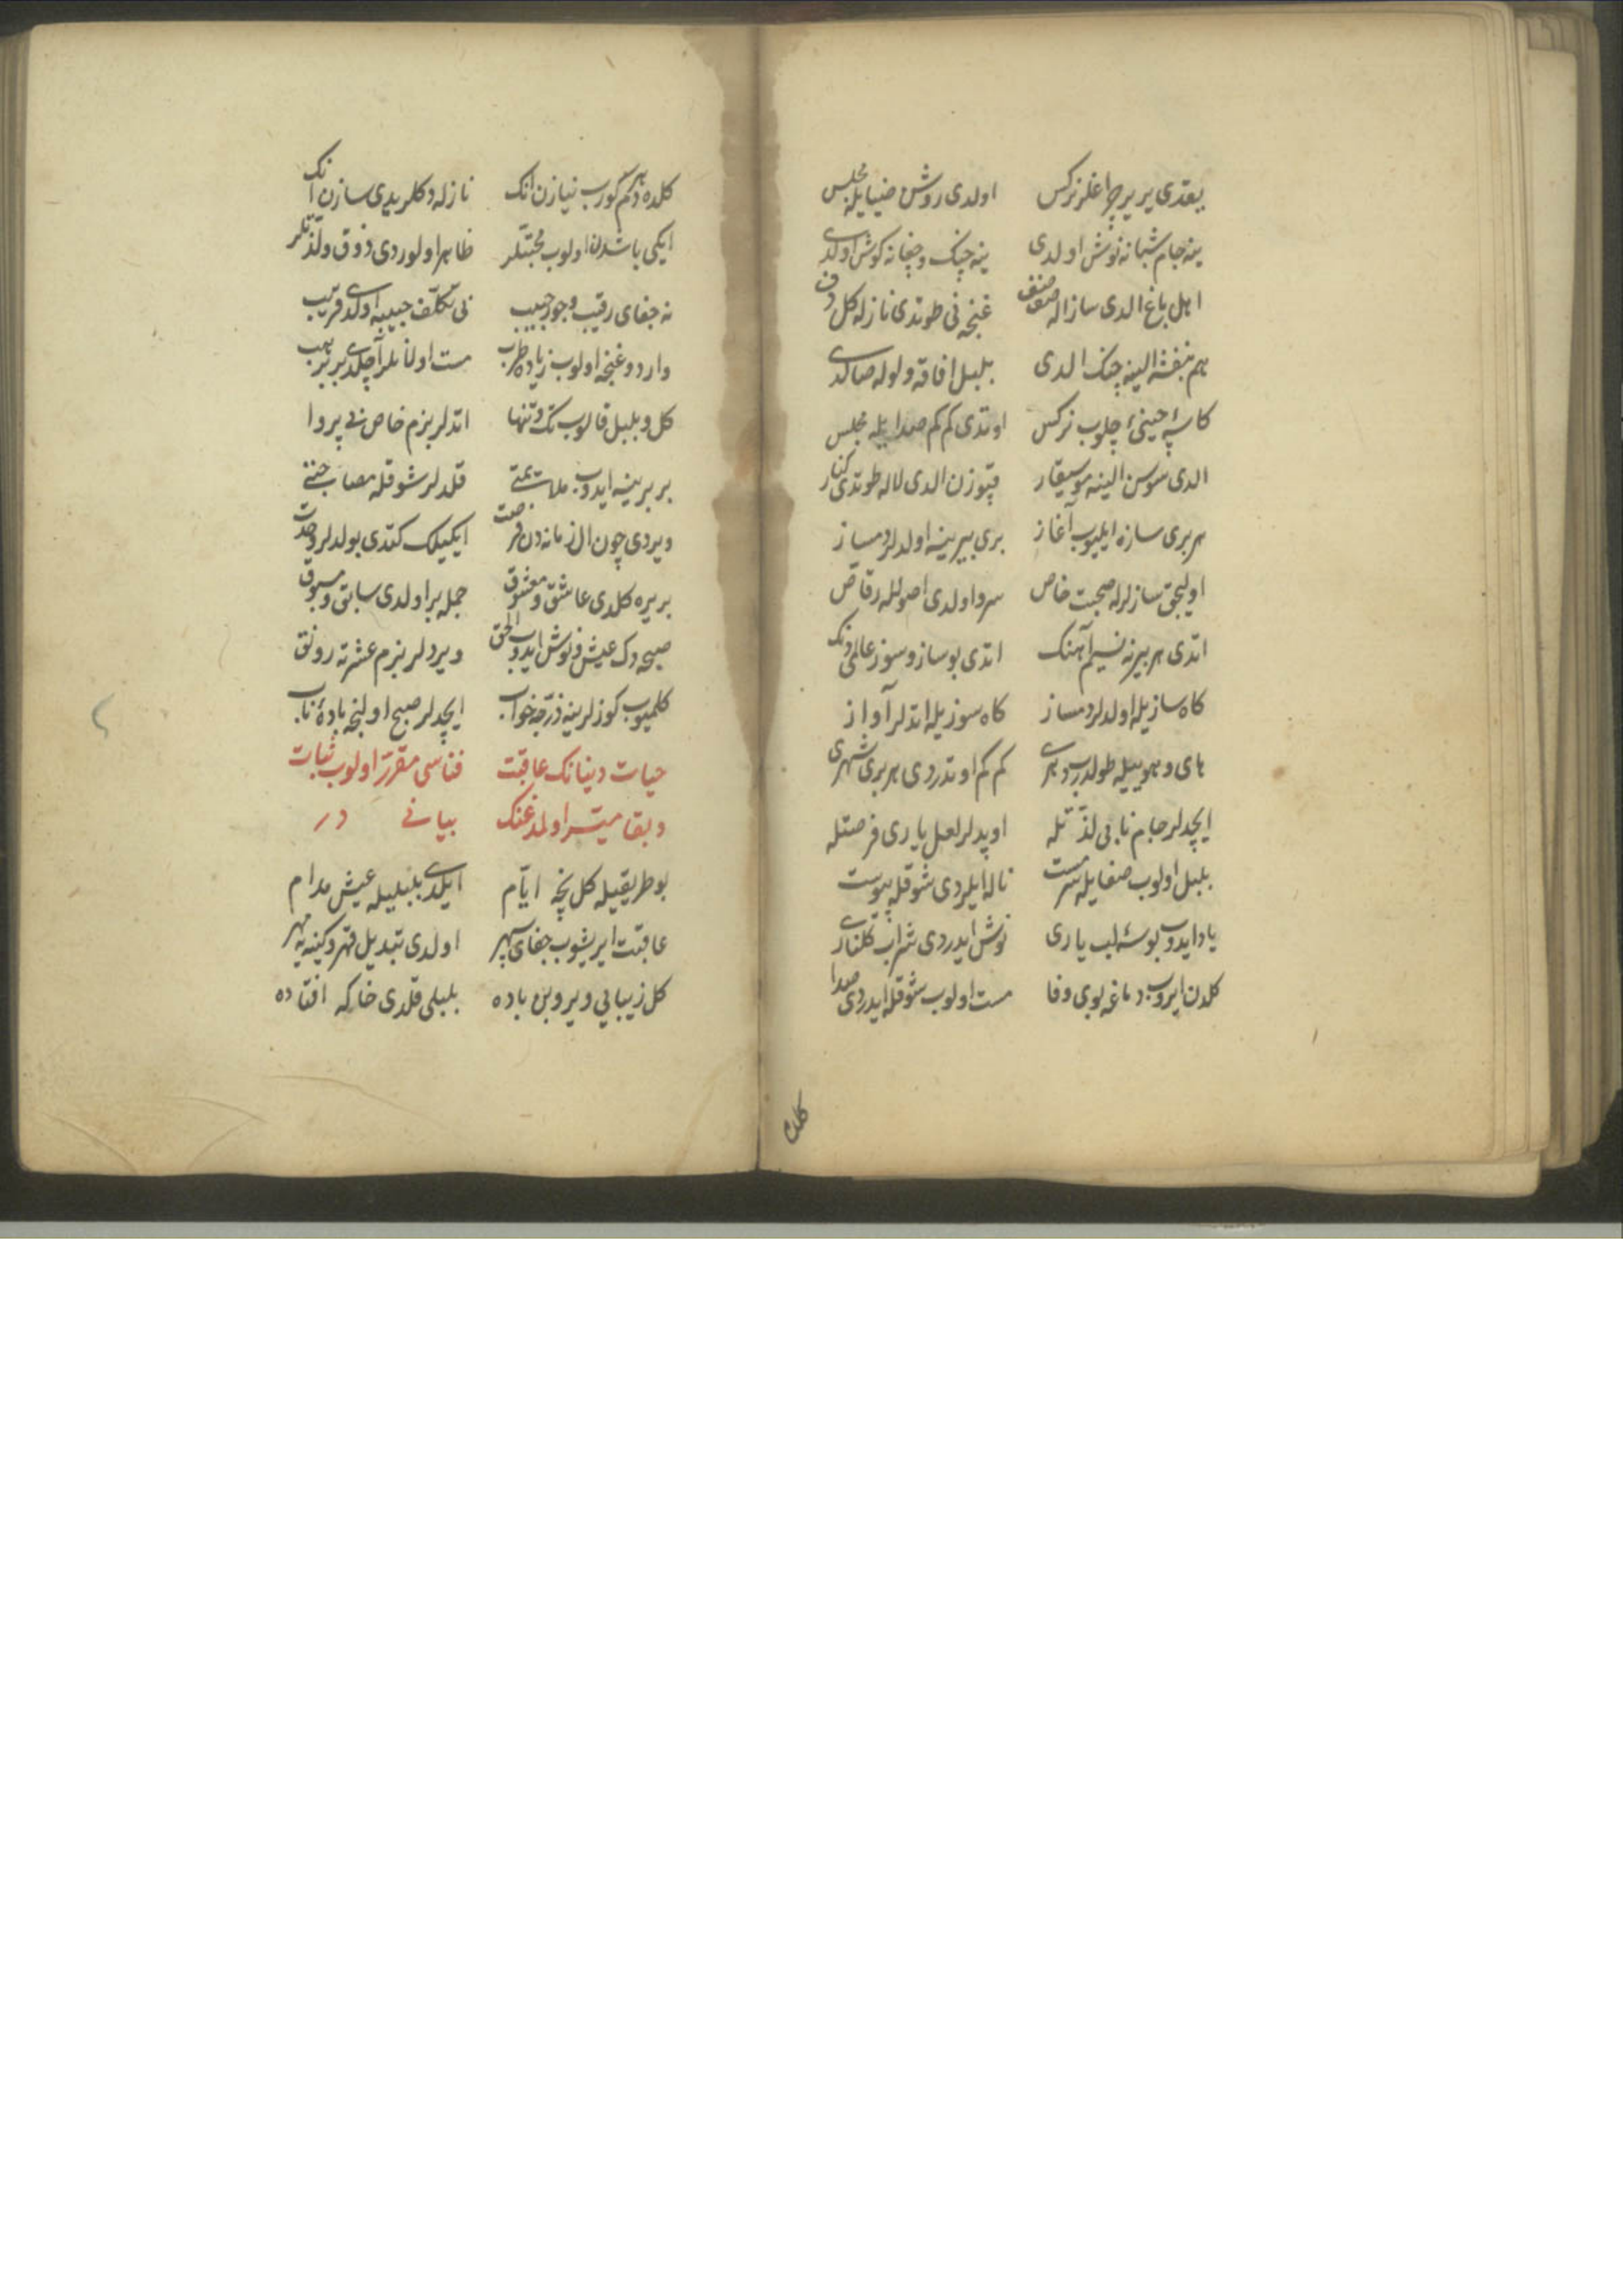 یقدی یر یر چراغلر نرکس اولدی روشن ضیایله مجلس
ینه جام شبانه نوش اولدی ینه چنک و چغانه کوش اولدی
اهل باغ الدی ساز اله صنف صنف غنچه نی طوتدی نازله کل دف
هم بنفشه الینه چنک الدی بلبل افاقه ولوله صالدی
کاسۀ چینی چلوب نرکس اوتدی کم کم صدایله مجلس
الدی سوسن الینه موسیقار قپوزن الدی لاله طوتدی کنار
هر بری سازه ایلیوب آغاز بری بیرینه اولدلر دمساز
اولیجق سازلرله صحبت خاص سرو اولدی اصولله رقاص
اتدی هر بیرنه نسیم آهنک اتدی بو ساز و سوز عالمی دنک
کاه سازیله اولدلر دمساز کاه سوزیله اتدلر آواز
های و هوییله طولدی دهری کم کم اوتدردی هر بری شهری
ایچدلر جام نابی لذتله اوپدلر لعل یاری فرصتله
بلبل اولوب صفایله سرمست ناله ایلردی شوقله پیوست
یاد ایدوب بوسۀ لب یاری نوش ایدردی شراب کلناری
کلدن ایروب دماغه بوی وفا مست اولوب شوقله ایدردی صدا
کلده
کلده دم کورب نیازن انک نازله دکلریدی سازن انک
ایکی باشدن اولوب محبتلر ظاهر اولوردی ذوق ولذتلر
نه جفای رقیب و جور حبیب بی تکلف حبیبه اولدی قریب
وارد و غنچه اولوب زیاده طرب مست اولانلر آچلدی بربر هپ
کل و بلبل قالوب تک و تنها اتدلر بزم خاص بی پروا
بر برینه ایدوب ملایمتی قلدلر شوقله مصاحبتی
ویردی چون ال زمانه دن فرصت ایکیلک کتدی بولدلر وحدت
بریره کلدی عاشق و معشوق جمله بر اولدی سابق و مسبوق
صبحه دک عیش و نوش ایدوب الحق ویردلر بزم عشرته رونق
کلمیوب کوزلرینه ذرجه خواب ایچدلر صبح اولنجه بادۀ ناب
حیات دنیانک عاقبت فناسی مقرر اولوب ثبات
و بقا میسر اولمدغنک بیانی در
بو طریقیله کل نچه ایام ایلدی بلبلیله عیش مدام
عاقبت ایریشوب جفای سپهر اولدی تبدیل قهر و کینه یه مهر
کل زیبایی ویروبن باده بلبلی قلدی خاکه افتاده